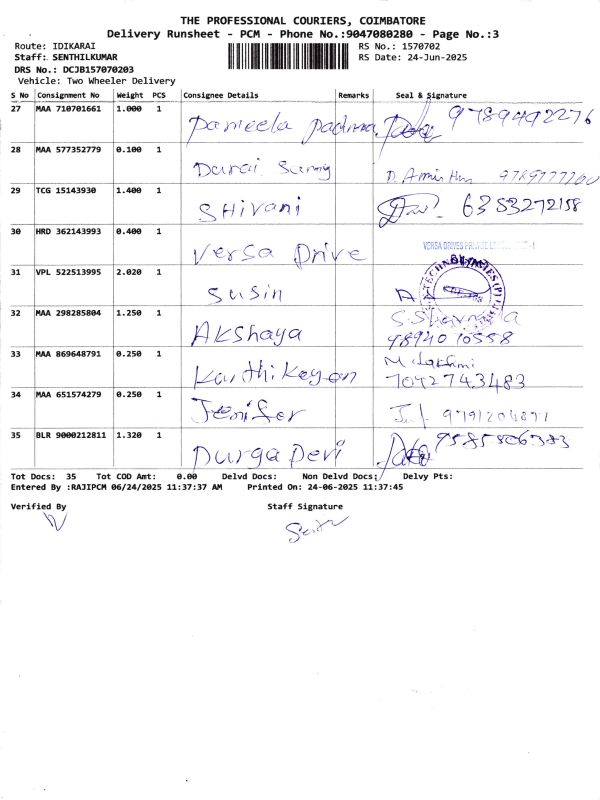 THE PROFESSIONAL COURIERS, COIMBATORE
Delivery Runsheet - PCM - Phone No.:9047080280 - Page No.:3
Route: IDIKARAI
RS No.: 1570702
Staff: SENTHILKUMAR
RS Date: 24-Jun-2025
DRS No.: DCJB157070203
Vehicle: Two Wheeler Delivery
S No Consignment No Weight PCS Consignee Details Remarks Seal & Signature
27 MAA 710701661 1.000 1 Pameela Padma 9789492276
28 MAA 577352779 0.100 1 Durai Samy
29 TCG 15143930 1.400 1 SHivani 6383272158
30 HRD 362143993 0.400 1 Versa Drive
VERSA DRIVES PRIVATE
31 VPL 522513995 2.020 1 Susin
TECHNOLOGIES (P) LTD
32 MAA 298285804 1.250 1 AKshaya
98940 10558
33 MAA 869648791 0.250 1 Karthikeyan
7042743483
34 MAA 651574279 0.250 1 Jenifer 9791204871
35 BLR 9000212811 1.320 1 Durga Devi 9585806383
Tot Docs: 35 Tot COD Amt: 0.00 Delvd Docs: Non Delvd Docs: Delvy Pts:
Entered By :RAJIPCM 06/24/2025 11:37:37 AM Printed On: 24-06-2025 11:37:45
Verified By Staff Signature